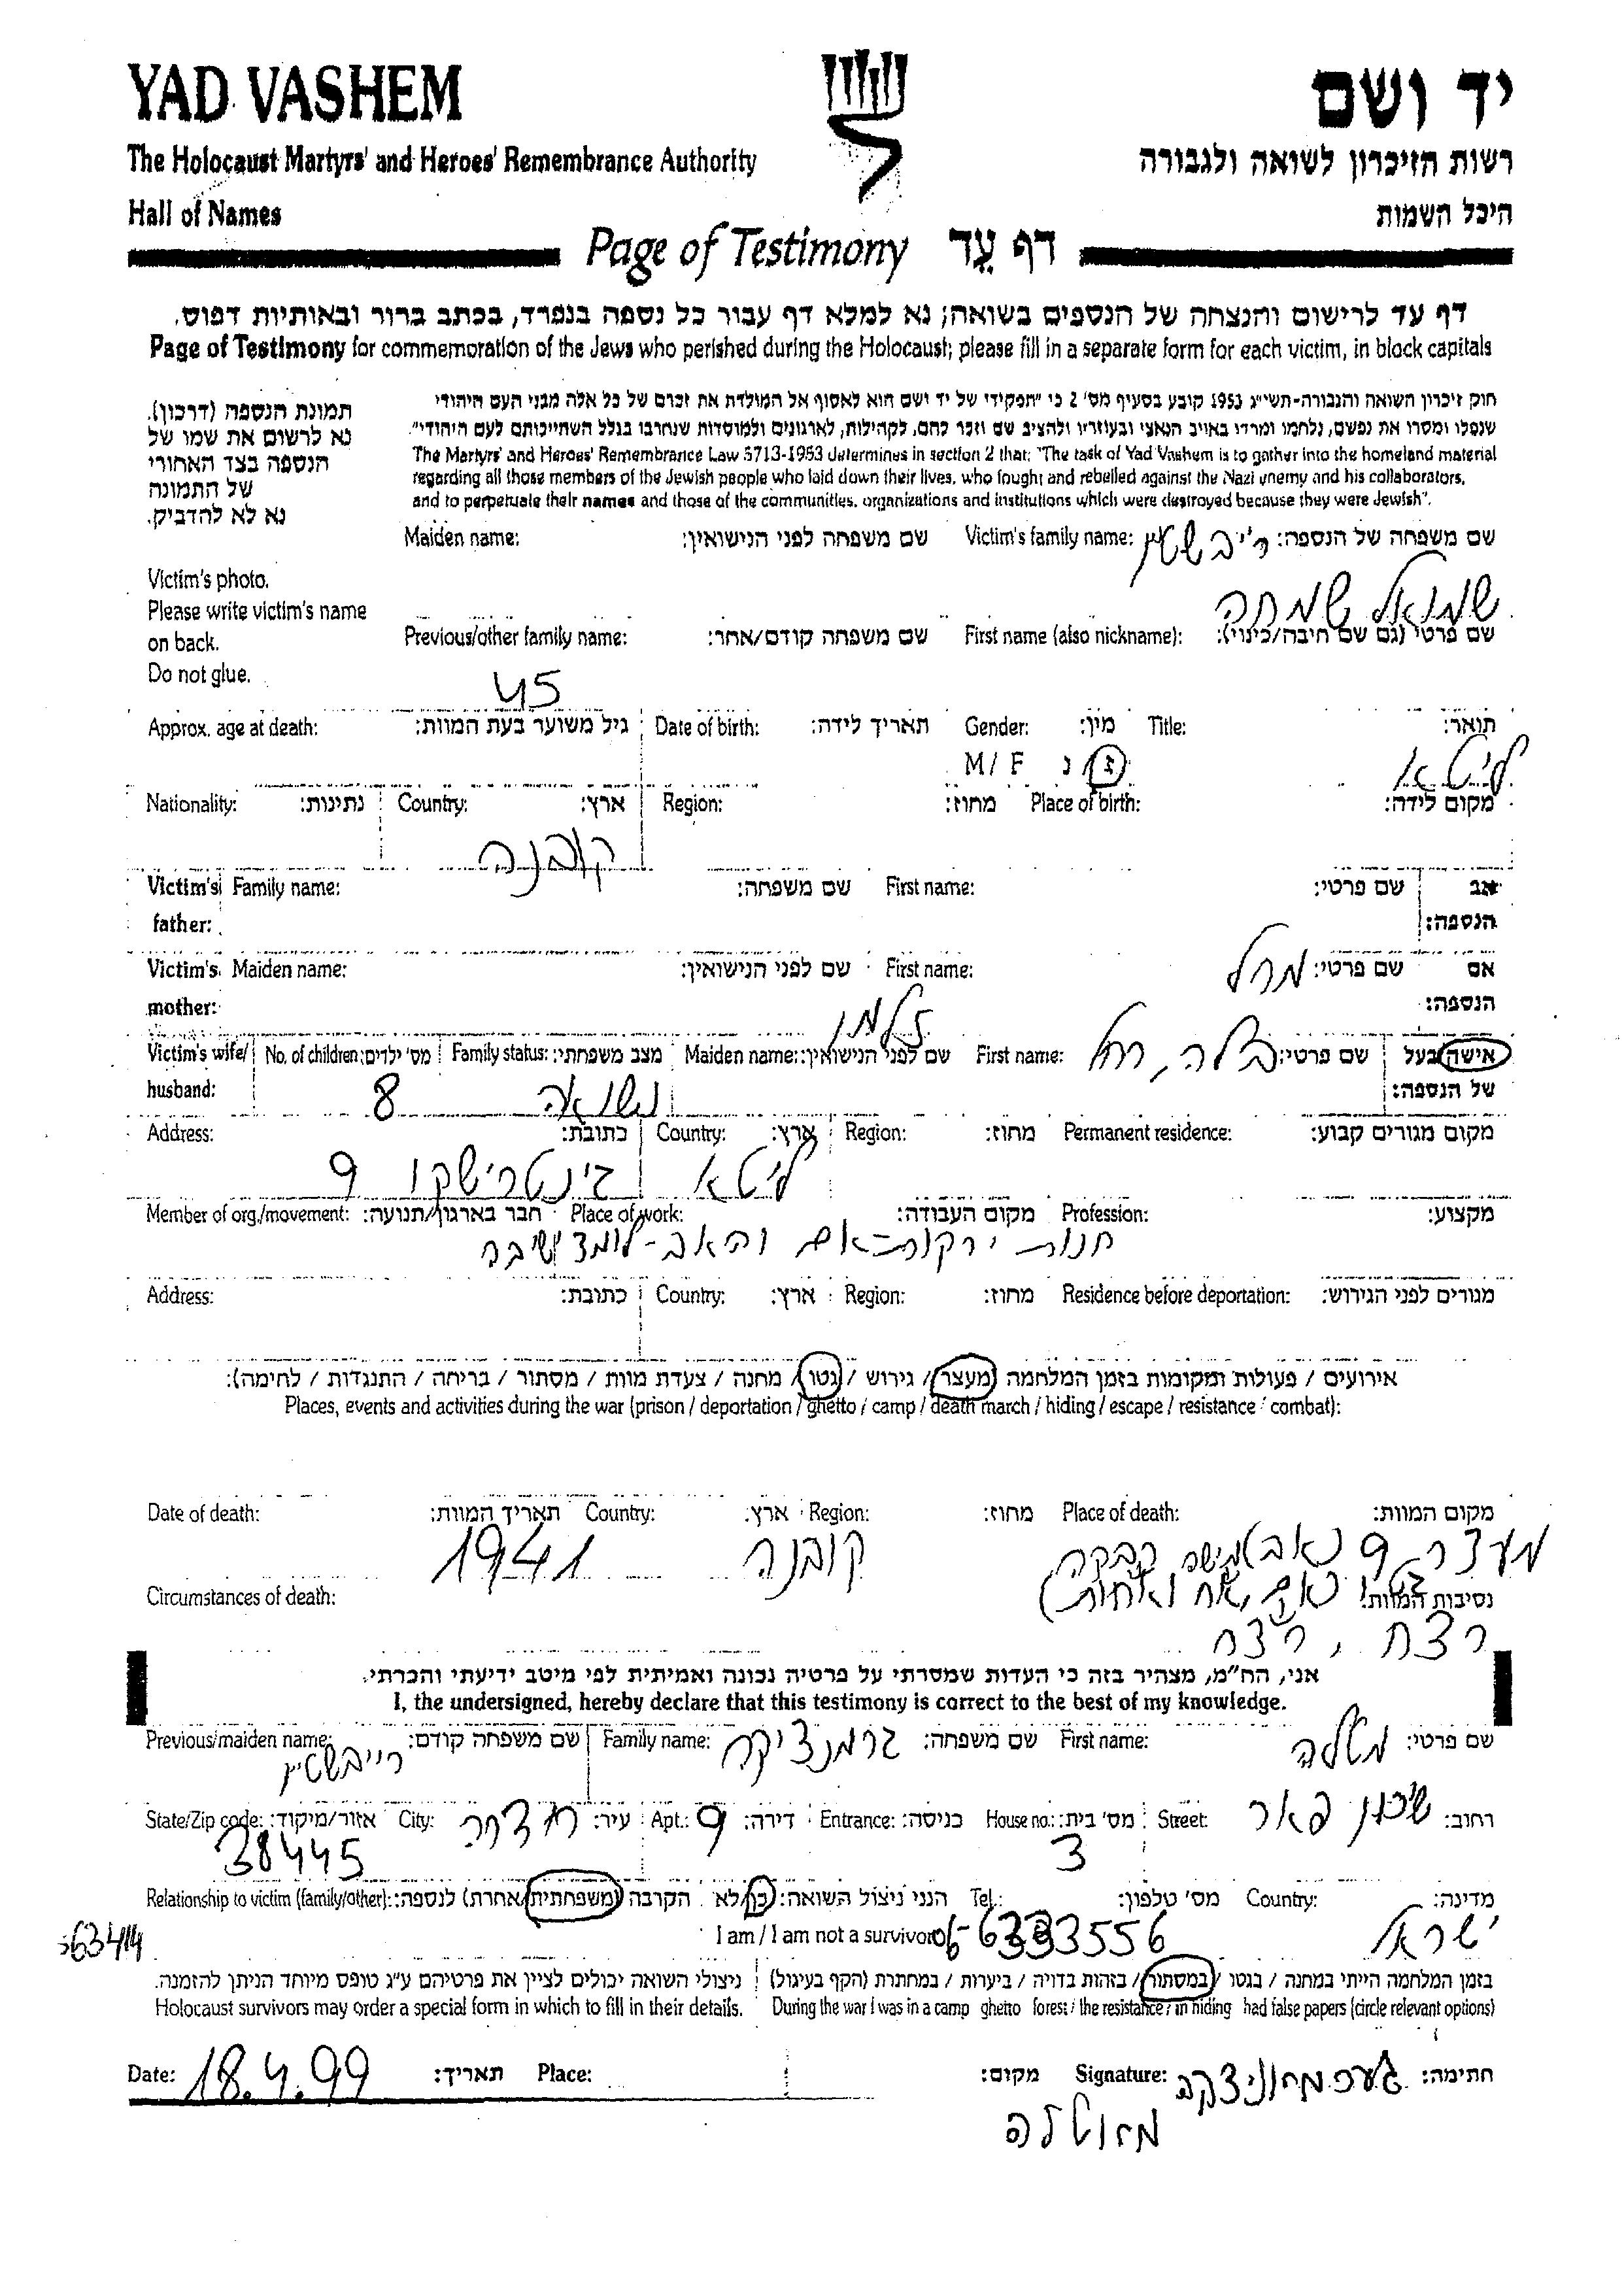 YAD VASHEM
יד ושם
The Holocaust Martyrs' and Heroes' Remembrance Authority
רשות הזיכרון לשואה ולגבורה
Hall of Names
היכל השמות
Page of Testimony דף עֵד
דף עד לרישום והנצחה של הנספים בשואה; נא למלא דף עבור כל נספה בנפרד, בכתב ברור ובאותיות דפוס.
Page of Testimony for commemoration of the Jews who perished during the Holocaust; please fill in a separate form for each victim, in block capitals
תמונת הנספה (דרכון).
נא לרשום את שמו של
הנספה בצד האחורי
של התמונה
נא לא להדביק.
חוק זיכרון השואה והגבורה-תשי"ג 1953 קובע בסעיף מס' 2 כי "תפקידו של יד ושם הוא לאסוף אל המולדת את זכרם של כל אלה מבני העם היהודי
שנפלו ומסרו את נפשם, נלחמו ומרדו באויב הנאצי ובעוזריו ולהציב שם וזכר להם, לקהילות, לארגונים ולמוסדות שנחרבו בגלל השתייכותם לעם היהודי".
The Martyrs' and Heroes' Remembrance Law 5713-1953 determines in section 2 that: "The task of Yad Vashem is to gather into the homeland material
regarding all those members of the Jewish people who laid down their lives, who fought and rebelled against the Nazi enemy and his collaborators,
and to perpetuate their names and those of the communities, organizations and institutions which were destroyed because they were Jewish".
Victim's photo.
Please write victim's name
on back.
Do not glue.
Maiden name: שם משפחה לפני הנישואין: Victim's family name: שם משפחה של הנספה: רייבשטיין
שמואל שמחה
Previous/other family name: שם משפחה קודם/אחר: First name (also nickname): שם פרטי (גם שם חיבה/כינוי):
45
Approx. age at death: גיל משוער בעת המוות: Date of birth: תאריך לידה: Gender: מין: Title: תואר:
M / F ז / נ
ליטא
Nationality: נתינות: Country: ארץ: Region: מחוז: Place of birth: מקום לידה:
קובנה
Victim's father: Family name: שם משפחה: First name: שם פרטי: אב הנספה:
Victim's mother: Maiden name: שם לפני הנישואין: First name: שם פרטי: מרל אם הנספה:
זלמן
Victim's wife/ husband: No. of children: מס' ילדים: Family status: מצב משפחתי: Maiden name: שם לפני הנישואין: First name: שם פרטי: בלה, רחל אישה/בעל של הנספה:
8 נשואה
Address: כתובת: Country: ארץ: Region: מחוז: Permanent residence: מקום מגורים קבוע:
9 ליטא
Member of org./movement: חבר בארגון/תנועה: Place of work: מקום העבודה: Profession: מקצוע:
חנות ירקות-אם והאב-לומד ישיבה
Address: כתובת: Country: ארץ: Region: מחוז: Residence before deportation: מגורים לפני הגירוש:
אירועים / פעולות ומקומות בזמן המלחמה (מעצר / גירוש / גטו / מחנה / צעדת מוות / מסתור / בריחה / התנגדות / לחימה):
Places, events and activities during the war (prison / deportation / ghetto / camp / death march / hiding / escape / resistance / combat):
Date of death: תאריך המוות: Country: ארץ: Region: מחוז: Place of death: מקום המוות:
1941 קובנה מעצר 9 (אב)
Circumstances of death: נסיבות המוות: (אם, אח ואחות)
רצח, רצח
אני, הח"מ, מצהיר בזה כי העדות שמסרתי על פרטיה נכונה ואמיתית לפי מיטב ידיעתי והכרתי.
I, the undersigned, hereby declare that this testimony is correct to the best of my knowledge.
Previous/maiden name: שם משפחה קודם: Family name: שם משפחה: First name: שם פרטי:
רייבשטיין גרמנציקה מטלה
State/Zip code: אזור/מיקוד: City: עיר: חדרה Apt.: דירה: 9 Entrance: כניסה: House no.: מס' בית: Street: רחוב: שיכון פאר
38445 3
Relationship to victim (family/other): הקרבה (משפחתית/אחרת) לנספה: הנני ניצול השואה: כן/לא Tel.: מס' טלפון: Country: מדינה:
I am / I am not a survivor 06-6333556 ישראל
בזמן המלחמה הייתי במחנה / בגטו / במסתור / בזהות בדויה / ביערות / במחתרת (הקף בעיגול)
ניצולי השואה יכולים לציין את פרטיהם ע"ג טופס מיוחד הניתן להזמנה.
Holocaust survivors may order a special form in which to fill in their details.
During the war I was in a camp ghetto forest / the resistance / in hiding had false papers (circle relevant options)
Date: 18.4.99 תאריך: Place: מקום: Signature: חתימה: